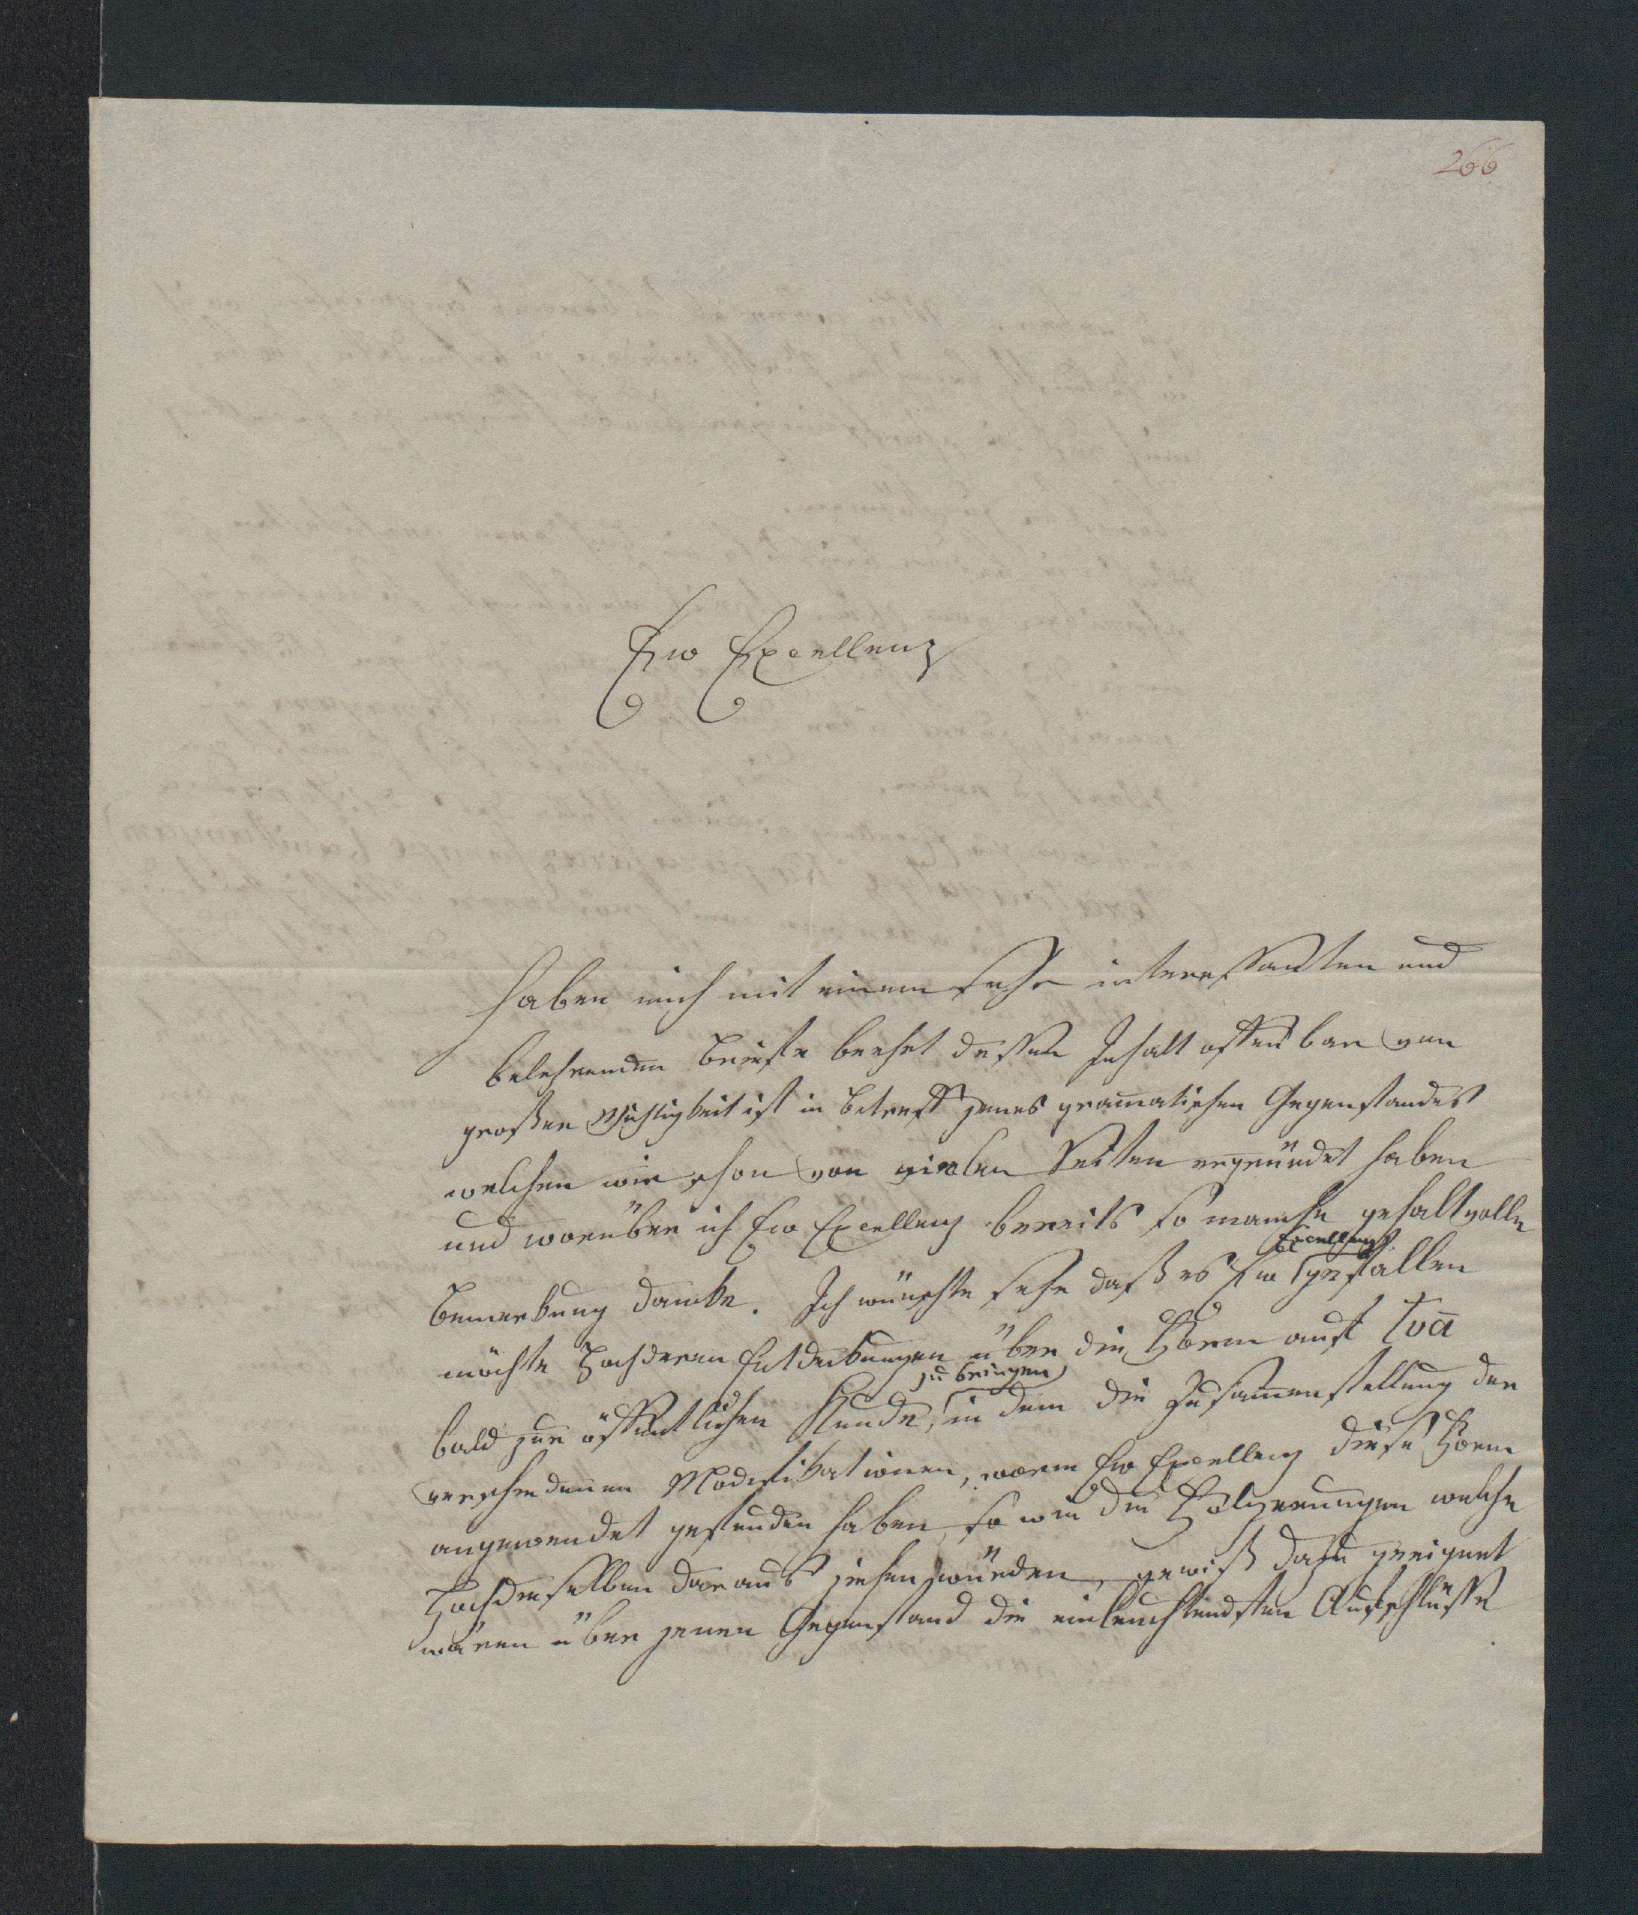 266
Ew Excellenz
haben mich mit einem sehr interessanten und
belehrenden Briefe beehrt dessen Inhalt offenbar von
großer Wichtigkeit ist in betreff jenes gramatischen Gegenstandes
welchen wir schon von vielen Seiten ergründet haben
und worüber ich Ew Excellenz bereits so manche gehaltvolle
Bemerkung danke. Ich wünschte sehr daß es Ew Excellenz gefallen
möchte Hochderen Entdeckungen über die Form auf tvā
bald zur öffentlichen Kunde zu bringen, in dem die Zusamenstellung der
verschiedenen Modifikationen, worin Ew Excellenz diese Form
angewendet gefunden haben, so wie die Folgerungen welche
Hochdieselben daraus ziehen würden, gewiß dazu geeignet
wären über jenen Gegenstand die einleuchtendsten Aufschlüsse